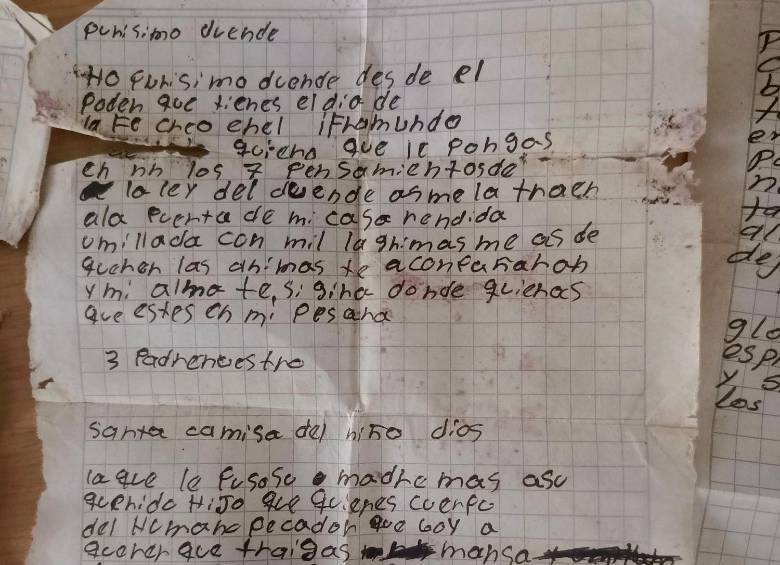 purisimo duende
HO Purisimo duende des de el
Poder que tienes el dia de
la Fe creo enel iFramundo
quiero que le Pongas
en nn los 7 Pensamientos de
la ley del duende asmela traer
ala Puerta de mi casa rendida
umillada con mil lagrimas me as de
querer las animas te aconPañaron
y mi alma te sigira donde quieras
que estes en mi Pesara
3 Padrenuestro
santa camisa del niño dios
la que le Pusosu madre mas asu
querido HiJo que quienes cuerPo
del Humano Pecador que boy a
querer que traigas mansa
P
glo
esp
y s
los